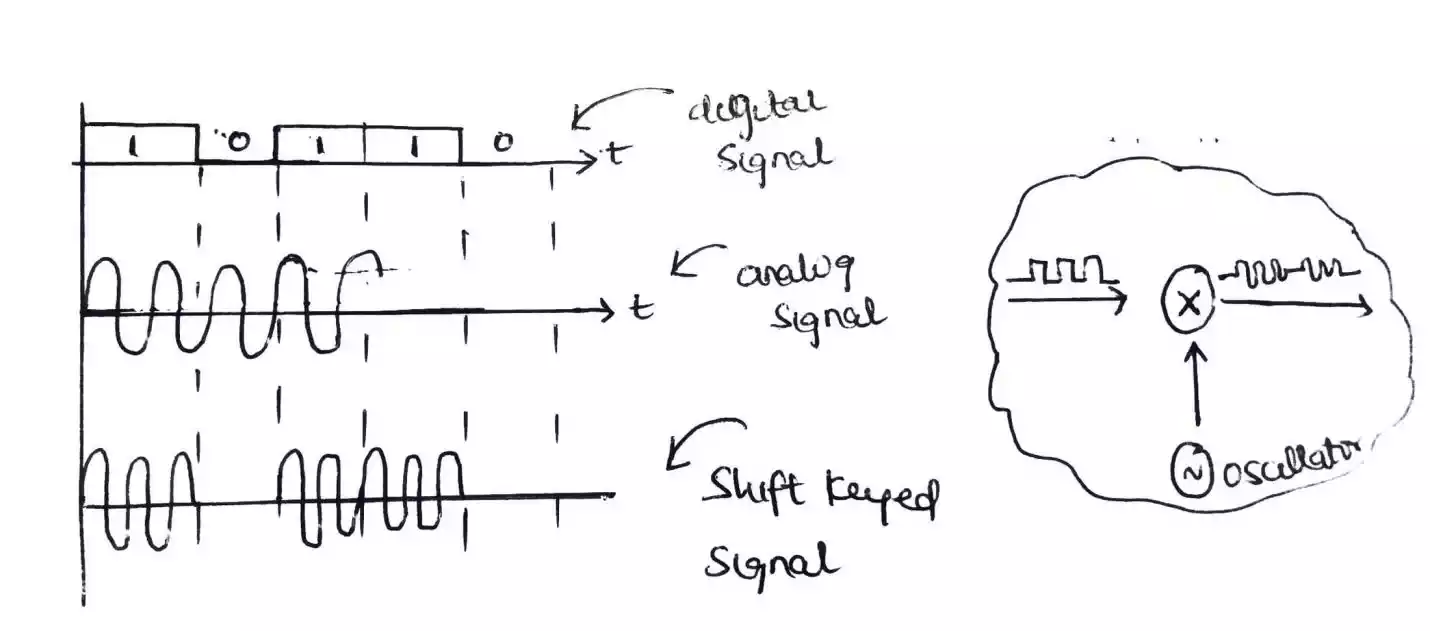 1 0 1 1 0
t
digital
signal
t
analog
signal
Shift Keyed
Signal
X
~ oscillator